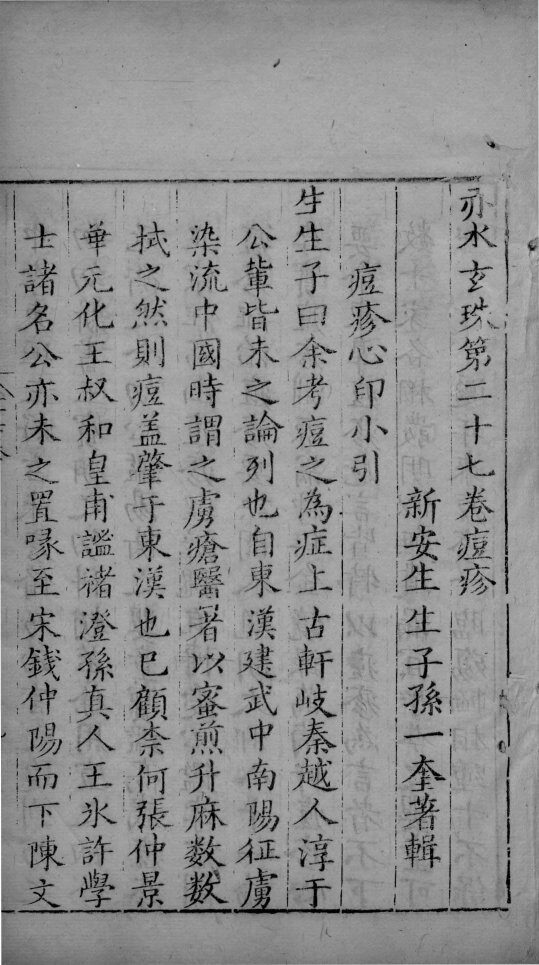 赤水玄珠第二十七卷痘疹
新安生生子孫一奎著輯
痘疹心印小引
生生子曰余考痘之為症上古軒岐秦越人淳于
公輩皆未之論列也自東漢建武中南陽征虜
染流中國時謂之虜瘡醫者以蜜煎升麻数数
拭之然則痘盖肇于東漢也已顧柰何張仲景
華元化王叔和皇甫謐褚澄孫真人王氷許學
士諸名公亦未之置喙至宋錢仲陽而下陳文